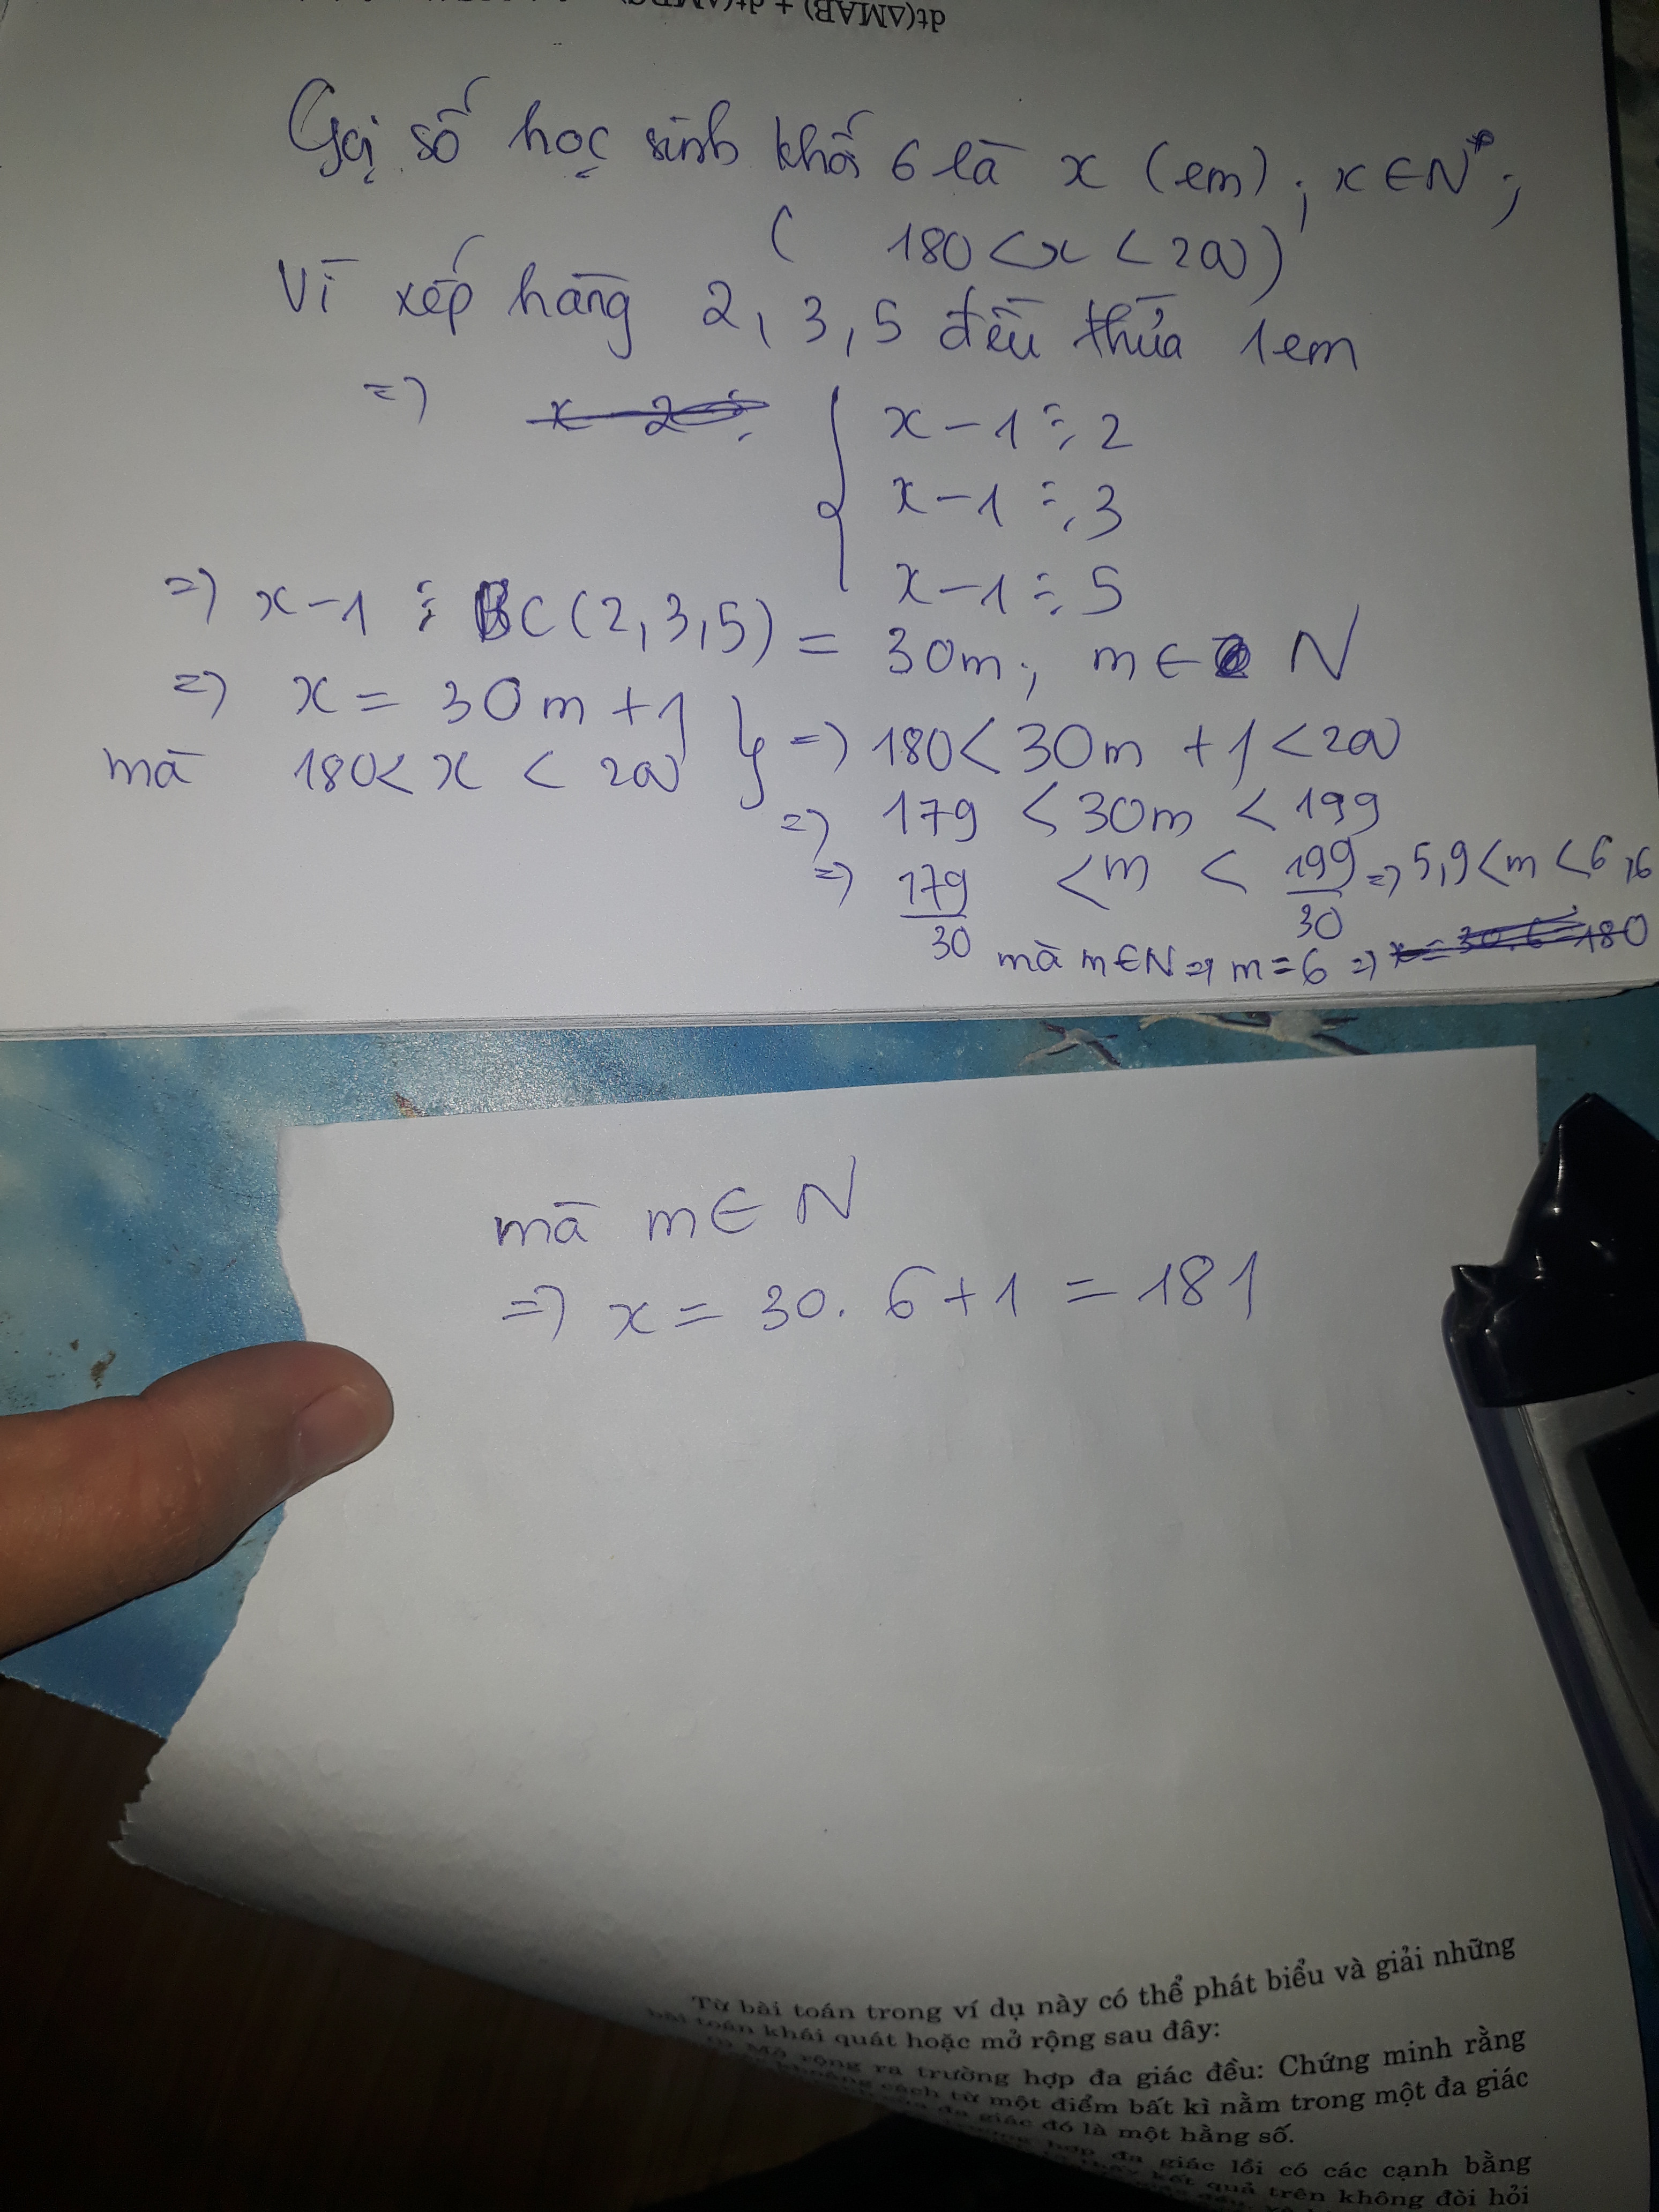 dt(ΔMAB) + dt(ΔMBC)
Gọi số học sinh khối 6 là x (em) ; x ∈ N* ;
( 180 < x < 200 )
Vì xếp hàng 2, 3, 5 đều thừa 1 em
=> x - 1 ⋮ 2
x - 1 ⋮ 3
x - 1 ⋮ 5
=> x - 1 ⋮ BC (2, 3, 5) = 30m ; m ∈ N
=> x = 30m + 1
mà 180 < x < 200 } => 180 < 30m + 1 < 200
=> 179 < 30m < 199
=> 179/30 < m < 199/30 => 5,9 < m < 6,6
mà m ∈ N => m = 6 => x = 30.6 = 180
mà m ∈ N
=> x = 30. 6 + 1 = 181
Từ bài toán trong ví dụ này có thể phát biểu và giải những
bài toán khái quát hoặc mở rộng sau đây:
Mở rộng ra trường hợp đa giác đều: Chứng minh rằng
khoảng cách từ một điểm bất kì nằm trong một đa giác
đa giác đó là một hằng số.
hợp đa giác lồi có các cạnh bằng
thấy kết quả trên không đòi hỏi